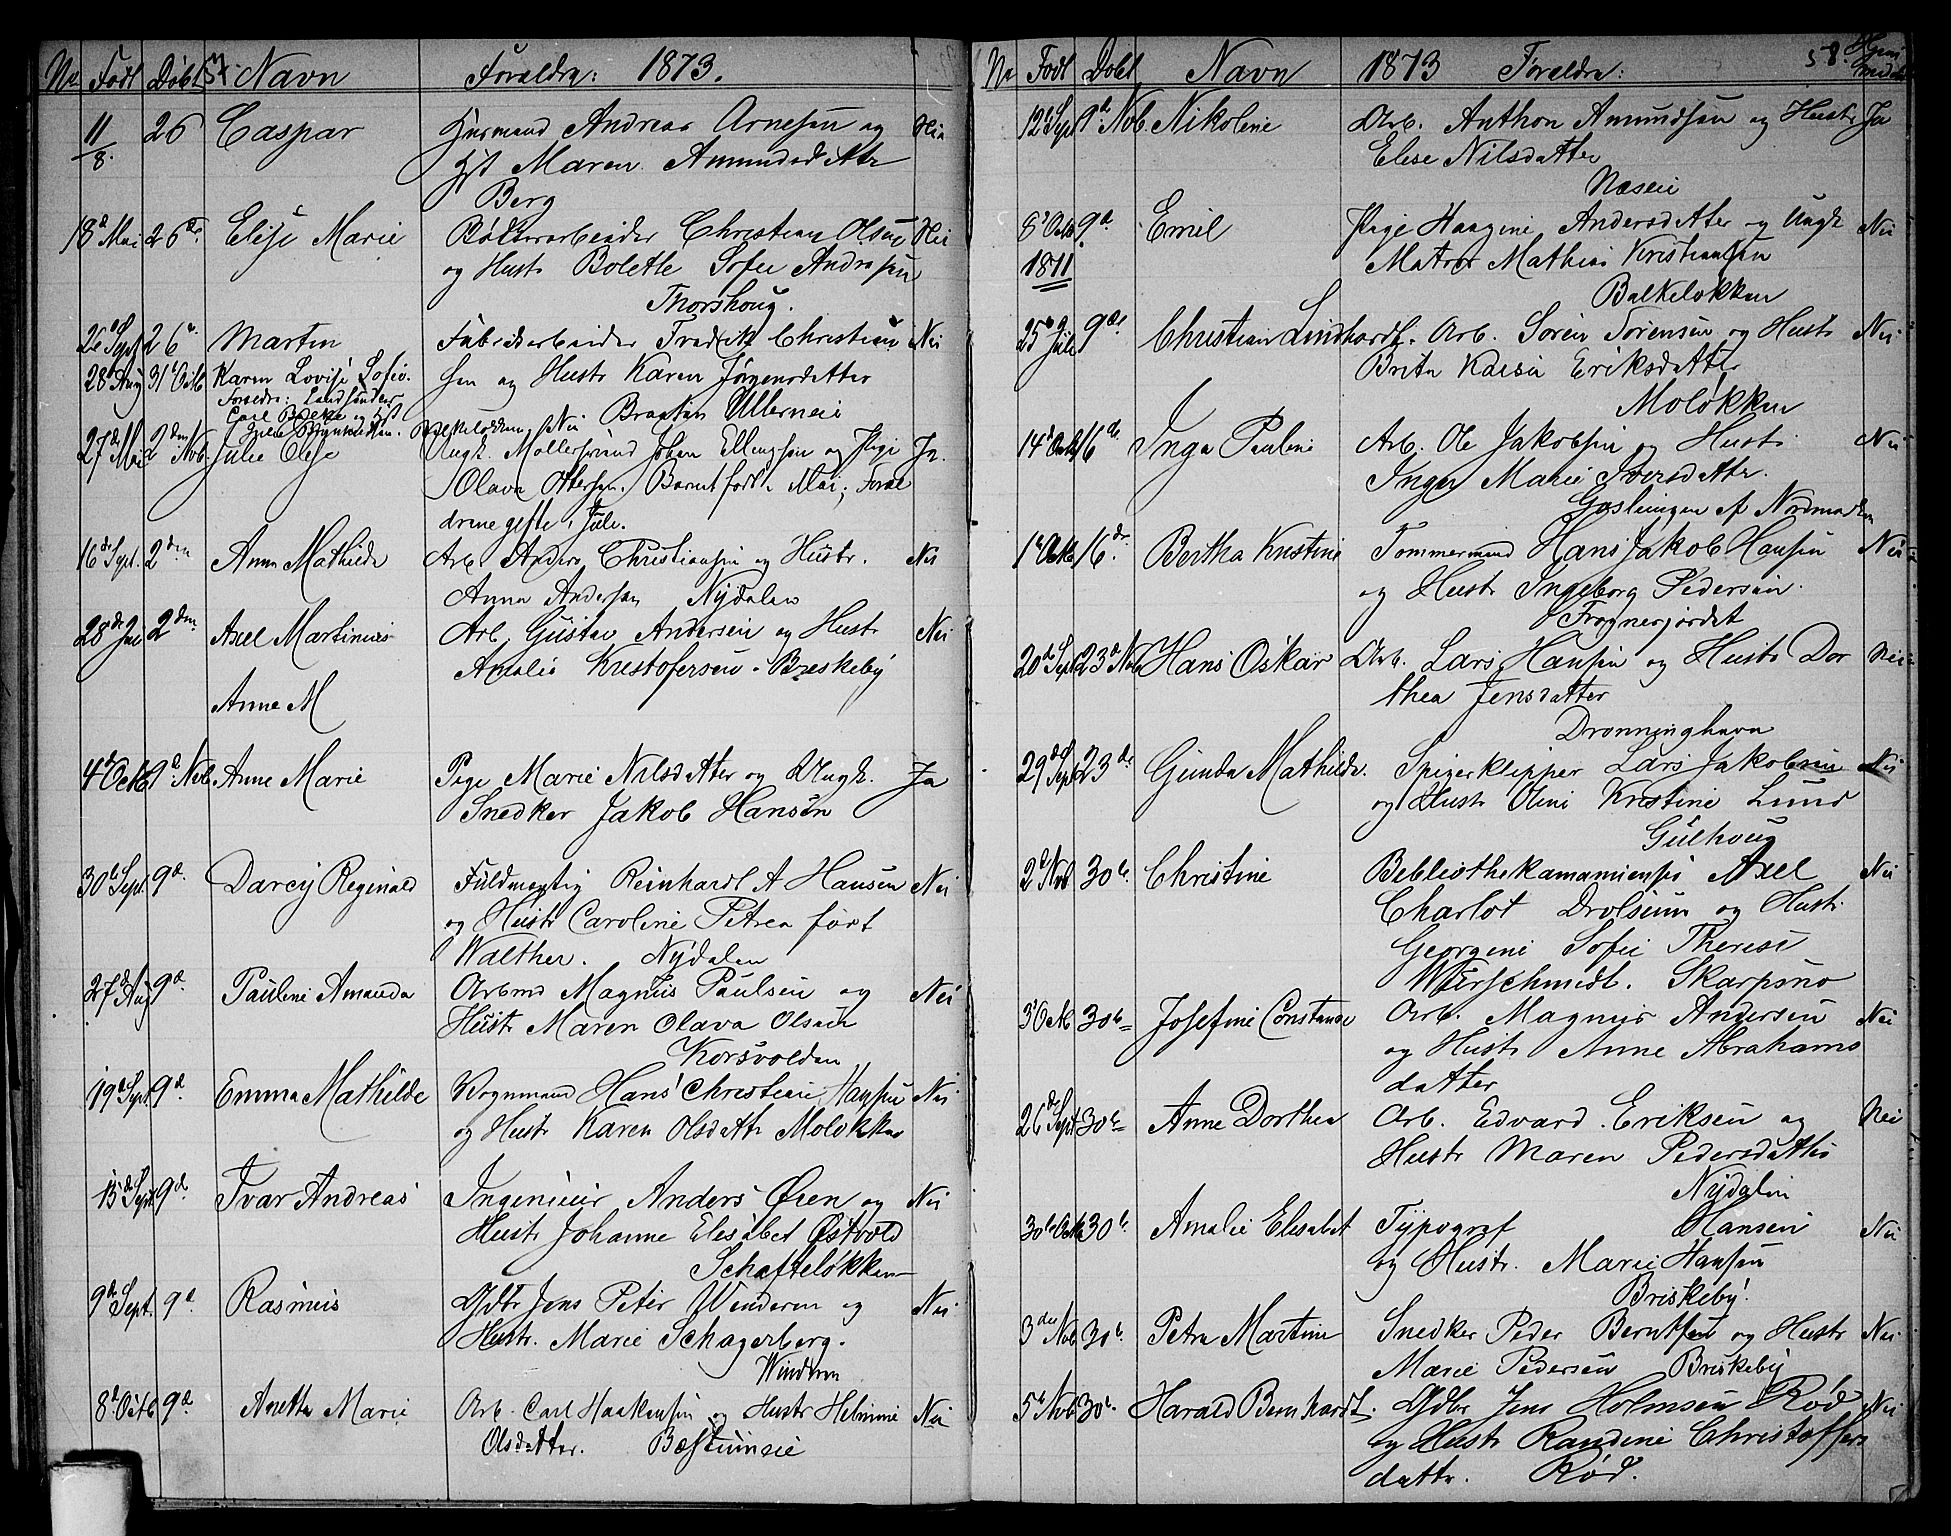 No Født Døbt 57. Navn Forældre: 1873.
11/8. 26 Caspar Husmand Andreas Arnesen og Nei
Hst Maren Amundsdatter
Berg
18d Mai 26de Elise Marie Christian Olsen Nei
og Hustr Bolette Sofie Andresen
Thorshoug.
26 Sept 26 Martin Fabrikarbeider Fredrik Christian Nei
28 Aug 31 Octb Karen Lovise Sofie. sen og Hustr Karen Jørgensdatter
Forældre: Landhandler
Braaten Ullerneie
Carl Balke og Hst
Balkeløkken Nei
27d Mai 2den Nov. Julie Elise Ungk. Johan Ellingsen og Pige Ja.
Olava Ottersen. Barnet født i Mai; Foræl
drene gifte i Jule.
16de Sept. 2den Anna Mathilde Arb. Anders Christiansen og Hustr. Nei
Anna Andersen Nydalen
28de Jul 2den Axel Martinius Arb. Gustav Andersen og Hustr Nei
Amalie Kristofersen. Breskeby
Anne M
4d Octb 9d Nov. Anne Marie Pige Marie Nilsdatter og Ungk. Ja
Snedker Jakob Hansen
30te Sept. 9d. Darcy Reginald Fuldmegtig Reinhardt A Hansen Nei
og Hustr Caroline Petrea født
Walther. Nydalen
27d Aug 9d. Pauline Amanda Arbmd Magnus Paulsen og Nei
Hustr Maren Olava Olsen
Korsvolden
19d Sept. 9d. Emma Mathilde Vognmand Hans Christian Hansen Nei
og Hustr Karen Olsdattr Moløkken
15d Sept 9d. Ivar Andreas Ingenieur Anders Øien og Nei
Hustr Johanne Elesabet Østvold
Schafteløkken
9d Sept. 9d. Rasmus Gdbr Jens Peter Winderen og Nei
Hustr. Marie Schagerberg.
Winderen
8d Octb 9d Anette Marie Arb. Carl Haakensen og Hustr Helmine Nei
Olsdatter. Bestumeie
No Født Døbt Navn 1873 Forældre: 58. Hjemmedøbt
12 Sept 9d Nov. Nikoline Arb. Anthon Amundsen og Hustr Ja
Elise Nilsdatter
Neseie
8d Octb 9d. Emil Pige Haagine Andersdatter og Ungk Nei
1871 Matros Mathias Kristiansen
Balkeløkken
25de Jule 9de Christian Lindhardt. Arb. Søren Sørensen og Hustr Nei
Brita Kaisa Eriksdatter
Moløkken
14d Octb 16de Inga Pauline Arb. Ole Jakobsen og Hustr Nei
Inger Marie Iversdatter.
Gaslungen af Nordmarken
1d Octb 16de. Bertha Kristine Tommermand Hans Jakob Hansen Nei
og Hustr Ingeborg Pedersen.
Frognerjordet
20d Sept 23d Nov Hans Oskar Arb. Lars Hansen og Hustr Dor Nei
thea Jensdatter
Dronninghavn
29d Sept 23de Gunda Mathilde. Spigerklipper Lars Jakobsen Nei
og Hustr Oline Kristine Lund
Gulhoug
2d Nov 30te. Christine Axel Nei
Charlot Drolsum og Hustr
Georgine Sofie Therese
Skarpsno
3 Octb 30te Josefine Constance Arb. Magnus Andersen Nei
og Hustr Anne Abrahams
datter
26de Sept 30te Anne Dorthea Arb. Edvard Eriksen og Nei
Hustr Maren Pedersdatter
Nydalen
30te Octb 30te Amalie Elisabet Typograf Hansen Nei
og Hustr. Marie Hansen
Briskeby.
3die Nov 30te. Petra Martine Snedker Peder Berntsen og Hustr Nei
Marie Pedersen Briskeby
5te Nov 30te. Harald Bernhardt. Gdbr Jens Holmsen Rød Nei
og Hustr Randine Christoffers
dattr. Rød.